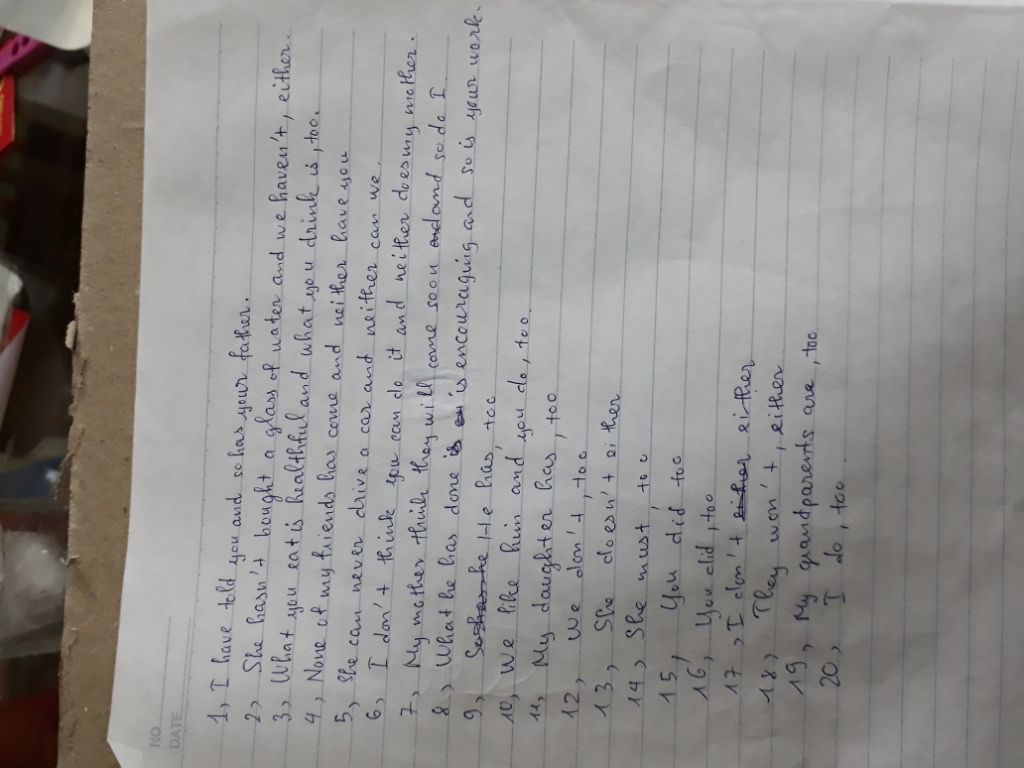 NO
DATE
1, I have told you and so has your father.
2, She hasn't bought a glass of water and we haven't, either.
3, What you eat is healthful and what you drink is, too.
4, None of my friends has come and neither have you
5, She can never drive a car and neither can we
6, I don't think you can do it and neither does my mother.
7, My mother think they will come soon and so do I
8, What he has done is encouraging and so is your work.
9, He has, too
10, We like him and you do, too
11, My daughter has, too
12, We don't, too
13, She doesn't either
14, She must, too
15, You did too
16, You did, too
17, I don't either
18, They won't, either
19, My grandparents are, too
20, I do, too